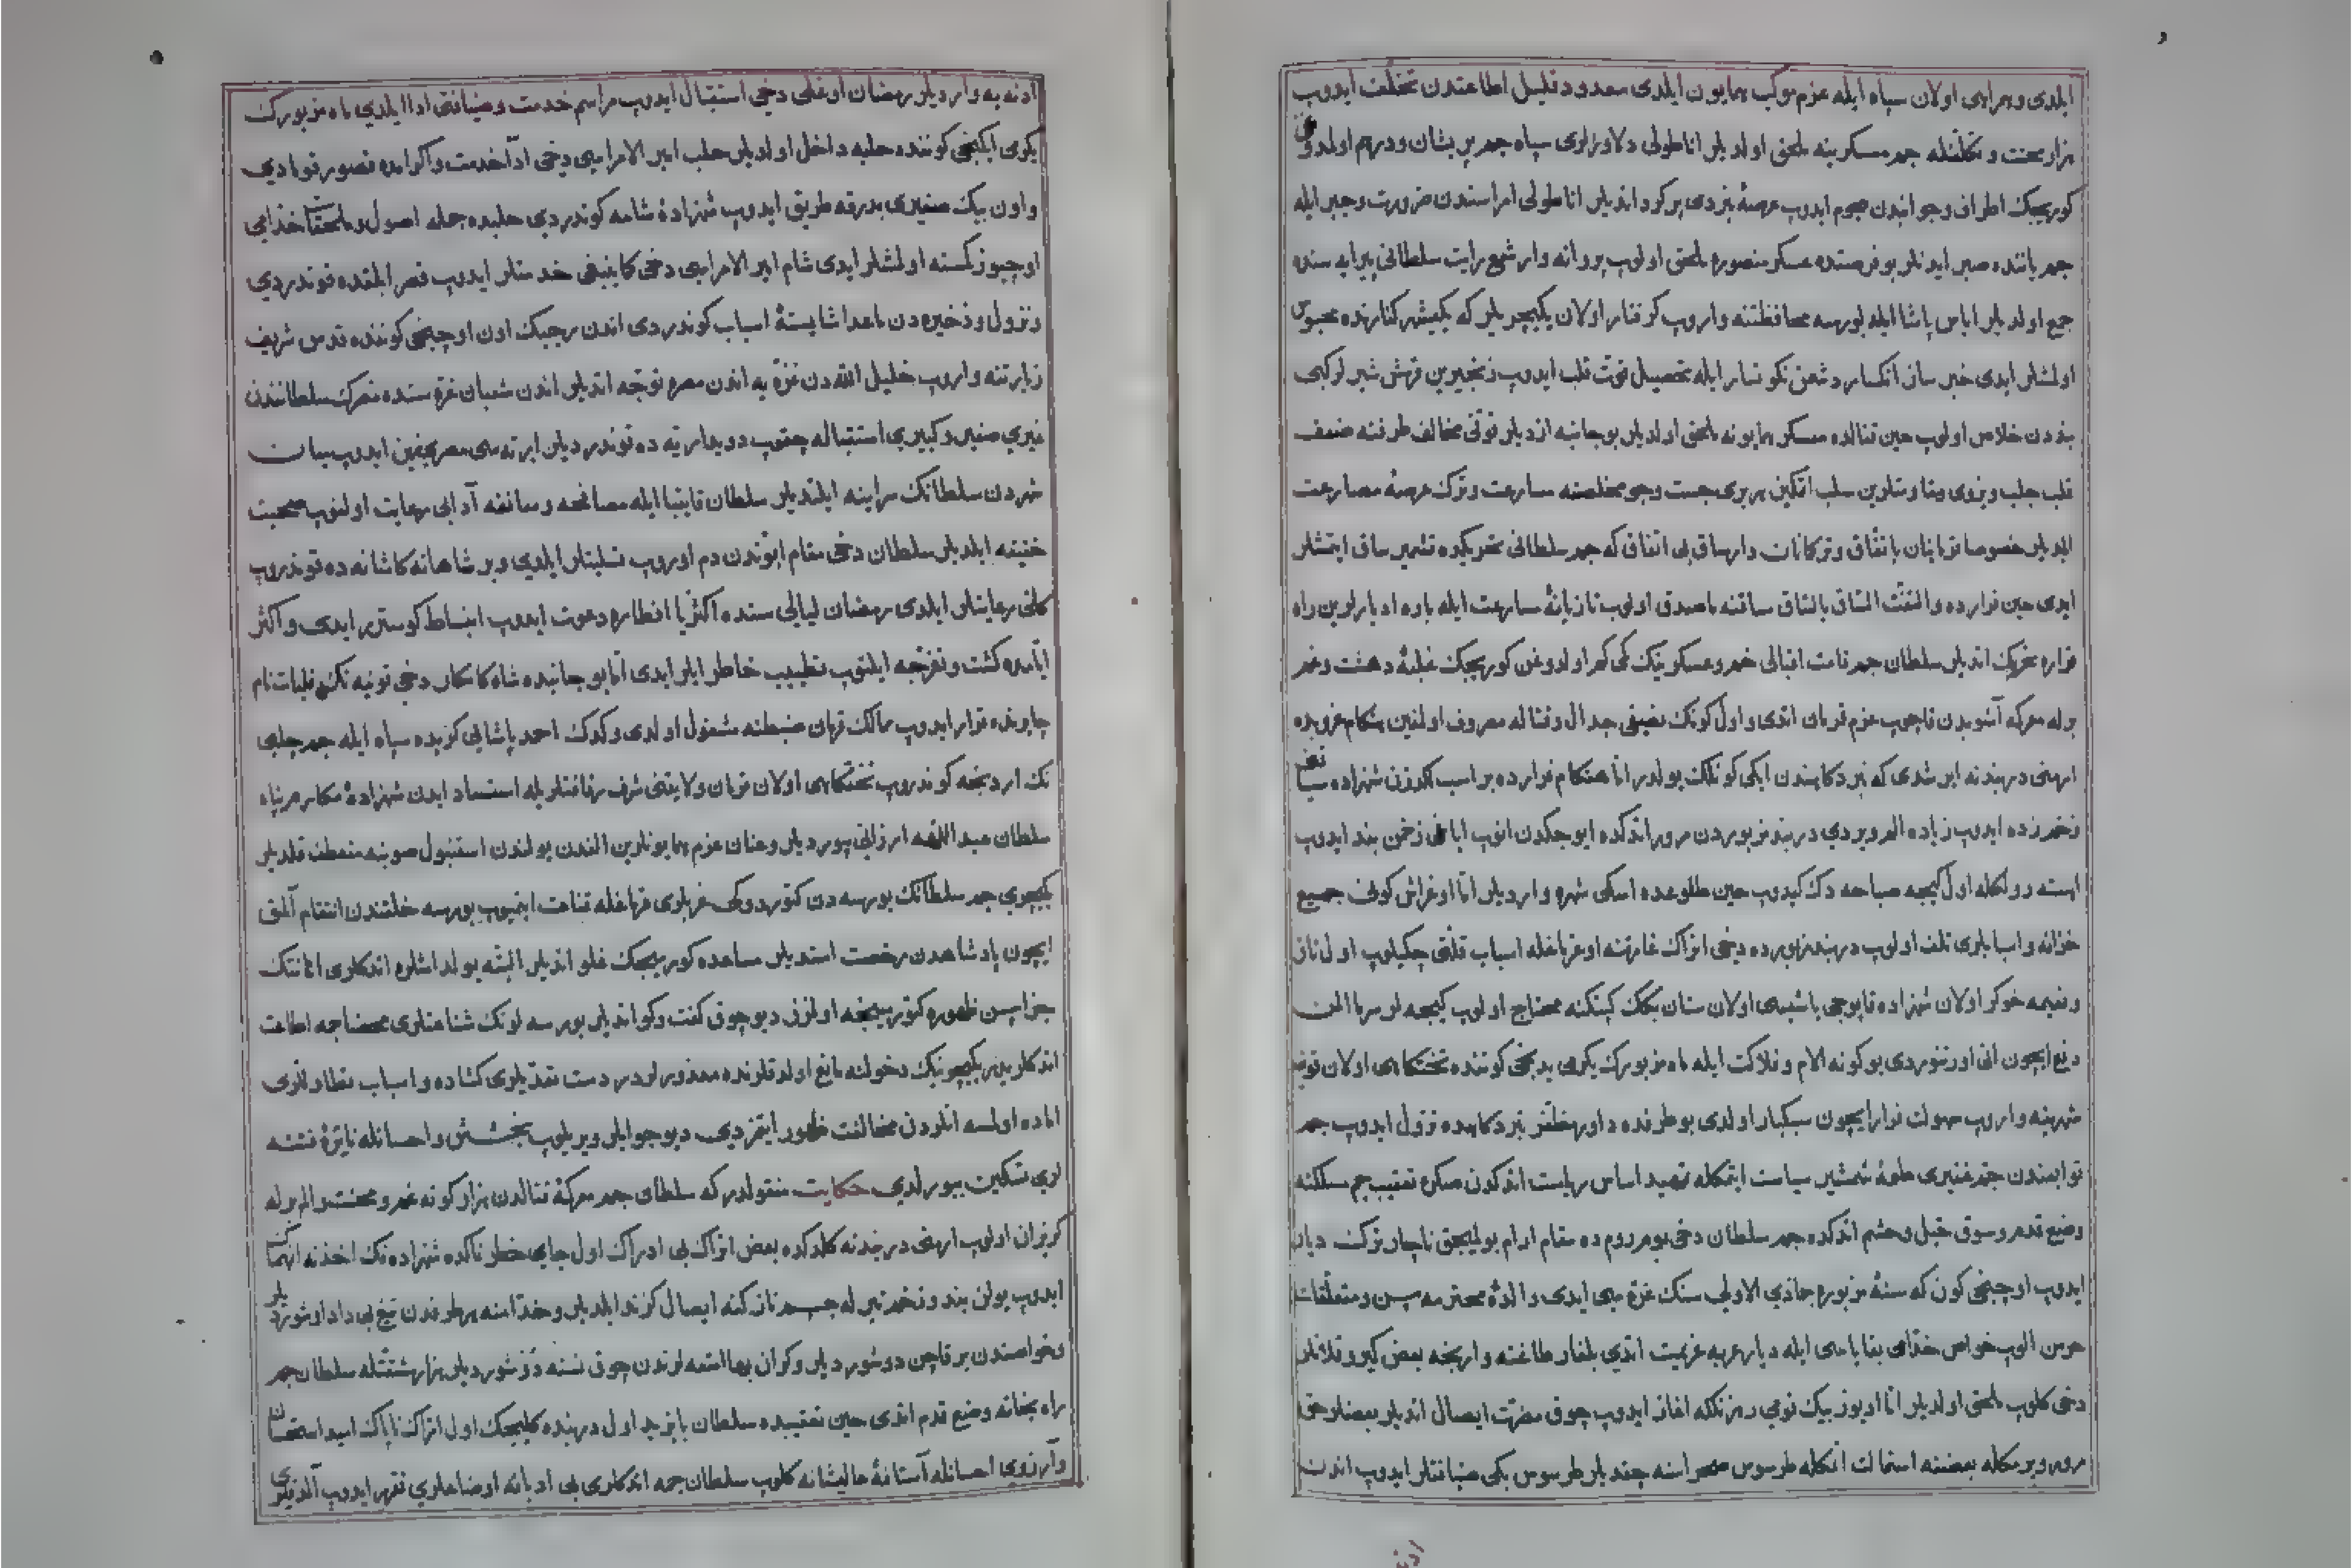 ایلدی و همراهی اولان سپاه ایله عزم موکب همایون ایلدی معدود و قلیل اطاعتدن تخلف ایدوب
هزار محنت و تکلفله جم عسکرینه ملحق اولدیلر اناطولی دلاورلری سپاه جم پریشان و درهم اولدوغن
کوریجک اطراف و جوانبدن هجوم ایدوب عرصهٔ نبردی پر کرد ایتدیلر اناطولی امراسندن ضرورت و جبر ایله
جم یاننده صبر ایدنلر بو فرصتده عسکر منصوره ملحق اولوب پروانه وار شمع رایت سلطانی پیرایه سنده
جمع اولدیلر ایاس پاشا ایله بورسه محافظتنه واروب کرفتار اولان یکیچریلر که یکیشهر کنارنده محبوس
اولمشلر ایدی خبر انکسار دشمن نکونسار ایله تحصیل قوت قلب ایدوب زنجیرین قرمش شیرلر کبی
بنددن خلاص اولوب حین قتالده عسکر همایونه ملحق اولدیلر بو جانبه ازدیاد قوتی مخالف طرفنه ضعف
قلب جلب و نیروی مقاومتلرین سلب اتمکین هر بری جست و جوی مخلصنه مسارعت و ترک عرصهٔ مصارعت
ایلدیلر خصوصا قرامانیان با نفاق و ترکمانان وارساق بی اتفاق که جم سلطانی تحریکده تشمیر ساق ایتمشلر
ایدی حین فرارده والتفت الساق بالساق سیاقنه ماصدق اولوب تازیانهٔ مسارعت ایله باره ادبارلرین راه
فراره تحریک اتدیلر سلطان جم قامت اقبالی خم و عسکرینک کمی کم اولدوغن کوریجک غلبهٔ دهشت و غم
برله معرکه آشوبدن قاچوب عزم قرمان اتدی و اول کونک نصفی جدال و قتاله مصروف اولمغین هنکام غروبده
ارمنی دربندنه ایرشدی که نبردکاهندن ایکی کونلک یولدر اما هنکام فرارده بر اسب لکدزن شهزاده ساقن
زخم زده ایدوب زیاده الم ویردی دربند مزبوردن مرور اتدکده ایوجکدن انوب ایاغی زخمن بند ایدوب
اهسته رولکله اول کیجه صباحه دک کیدوب حین طلوعده اسکی شهره واردیلر اما اوغراش کونی جمیع
خزانه و اسبابلری تلف اولوب دربند مزبورده دخی اتراک غارتنه اوغرامغله اسباب قلتی چکیلوب اول ناز
و نعیمه خوکر اولان شهزاده قاپوجی باشیسی اولان سنان بکک کپنکنه محتاج اولوب کیجه لر سرما المن
دفع ایچون انی اورتنوردی بو کونه الام و فلاکت ایله ماه مزبورک یکرمی یدنجی کوننده تختکاهی اولان قونیه
شهرینه واروب سهولت فرار ایچون سبکبار اولدی بو طرفده داور مظفر نبردکاهده نزول ایدوب جم
توابعندن جم غفیری طعمهٔ شمشیر سیاست ایتمکله تمهید اساس ریاست اتدکدن صکره تعقیب جم مسلکنه
وضع قدم و سوق خیل و حشم اتدکده جم سلطان دخی بوم رومده مقام ارام بولمیجق ناچار ترک دیار
ایدوب اوچنجی کون که سنهٔ مزبوره جمادی الاولی سنک غرهٔ سی ایدی والدهٔ محترمه سین و متعلقات
حرمن الوب خواص خدامی بقایاسی ایله دیار عربه عزیمت اتدی بلغار طاغنه وارنجه بعض کیرو قلانلر
دخی کلوب ملحق اولدیلر اما اویوز بیک نومی رهزنلکه اغاز ایدوب چوق مضرت ایصال اتدیلر بعضلر حق
مرور ویرمکله بعضنه استمالت اتمکله طرسوس صحراسنه چقدیلر طرسوس بکی ضیافتلر ایدوب اندن
ادنه
ادنه یه واردیلر رمضان اوغلی دخی استقبال ایدوب مراسم خدمت و ضیافتی ادا ایلدی ماه مزبورک
یکرمی ایکنجی کوننده حلبه داخل اولدیلر حلب امیر الامراسی دخی اداء خدمت و اکرامده قصور قومادی
و اون بیک صغیری بدرقه طریق ایدوب شهزادهٔ شامه کوندردی حلبده جمله اصول و ملحقات خدامی
اوچیوز کسنه اولمشلر ایدی شام امیر الامراسی دخی کما ینبغی خدمتلر ایدوب قصر ابلقده قوندردی
و نزول و ذخیره دن ماعدا شایستهٔ اسباب کوندردی اندن رجبک اون اوچنجی کوننده قدس شریف
زیارتنه واروب خلیل الله دن غزه یه اندن مصره توجه اتدیلر اندن شعبان غره سنده مصرک سلطانندن
غیری صغیر و کبیری استقباله چقوب دویدار یه ده قوندردیلر ایرته سی مصر یقین ایدوب میان
شهردن سلطانک سراینه ایلتدیلر سلطان قایتبا ایله مصافحه و معانقه آدابی رعایت اولنوب صحبت
خفیه ایلدیلر سلطان دخی مقام ابوتدن دم اوروب تسلیتلر ایلدی و بر شاهانه کاشانه ده قوندروب
کلی رعایتلر ایلدی رمضان لیالی سنده اکثریا افطاره دعوت ایدوب انبساط کوسترر ایدی و اکثر
ایامده کشت و تفرجه ایلتوب تطییب خاطر ایلر ایدی اما بو جانبده شاه کامکار دخی قونیه نک فلبات نام
چایرنده قرار ایدوب ممالک قرمان ضبطنه مشغول اولدی و کدک احمد پاشایی کزیده سپاه ایله جم چلبی
نک اردنجه کوندروب تختکاهی اولان قرمان ولایتنی شرف رفاقتلریله استسعاد ایدن شهزادهٔ مکارم پناه
سلطان عبد اللهه ارزانی بیوردیلر و عنان عزم همایونلرین الندن یولندن استنبول صوبنه منعطف قلدیلر
یکیچری جم سلطانک بورسه دن کتوردوکی غربلری قرمغله قناعت ایتمیوب بورسه خلقندن انتقام آلمق
ایچون پادشاهدن رخصت استدیلر مساعده کورمیجک غلو اتدیلر البته یولداشلره اتدکلری اهانتک
جزاسین ظهوره کتورمینجه اولمز دیو چوق کفت و کو اتدیلر بورسه لونک شناعتلری محضا جمه اطاعت
اتدکلریدر یکیچرینک دخولنه مانع اولدقلرنده معذورلردر دست تعدیلری کشاده و اسباب تطاوللری
اماده اولسه انلردن مخالفت ظهور ایتمزدی دیو جوابلر ویریلوب بخشش و احسانله نایرهٔ فتنه
لری تسکین بیورلدی حکایت منقولدر که سلطان جم معرکهٔ قتالدن هزار کونه غم و محنت و الم برله
کریزان اولوب ارمنی دربندنه کلدکده بعض اتراک بی ادراک اول جای خطرناکده شهزاده نک اخذنه اهتمام
ایدوب یولن بند و زخم تیر له جسم نازکنه ایصال کزند ایلدیلر و خدامنه هر طرفدن تیغ بی داد اوشوردیلر
و خواصندن بر قاچن دوشوردیلر و کران بها امتعه لرندن چوق نسنه دوشوردیلر هزار مشقتله سلطان جم
راه نجاته وضع قدم اتدی حین تعقیبده سلطان بایزید اول دربنده کلیجک اول اتراک ناپاک امید استحسان
و آرزوی احسانله آستانهٔ عالیشانه کلوب سلطان جمه اتدکلری بی ادبانه اوضاعلری تقریر ایدوب آلدیلری